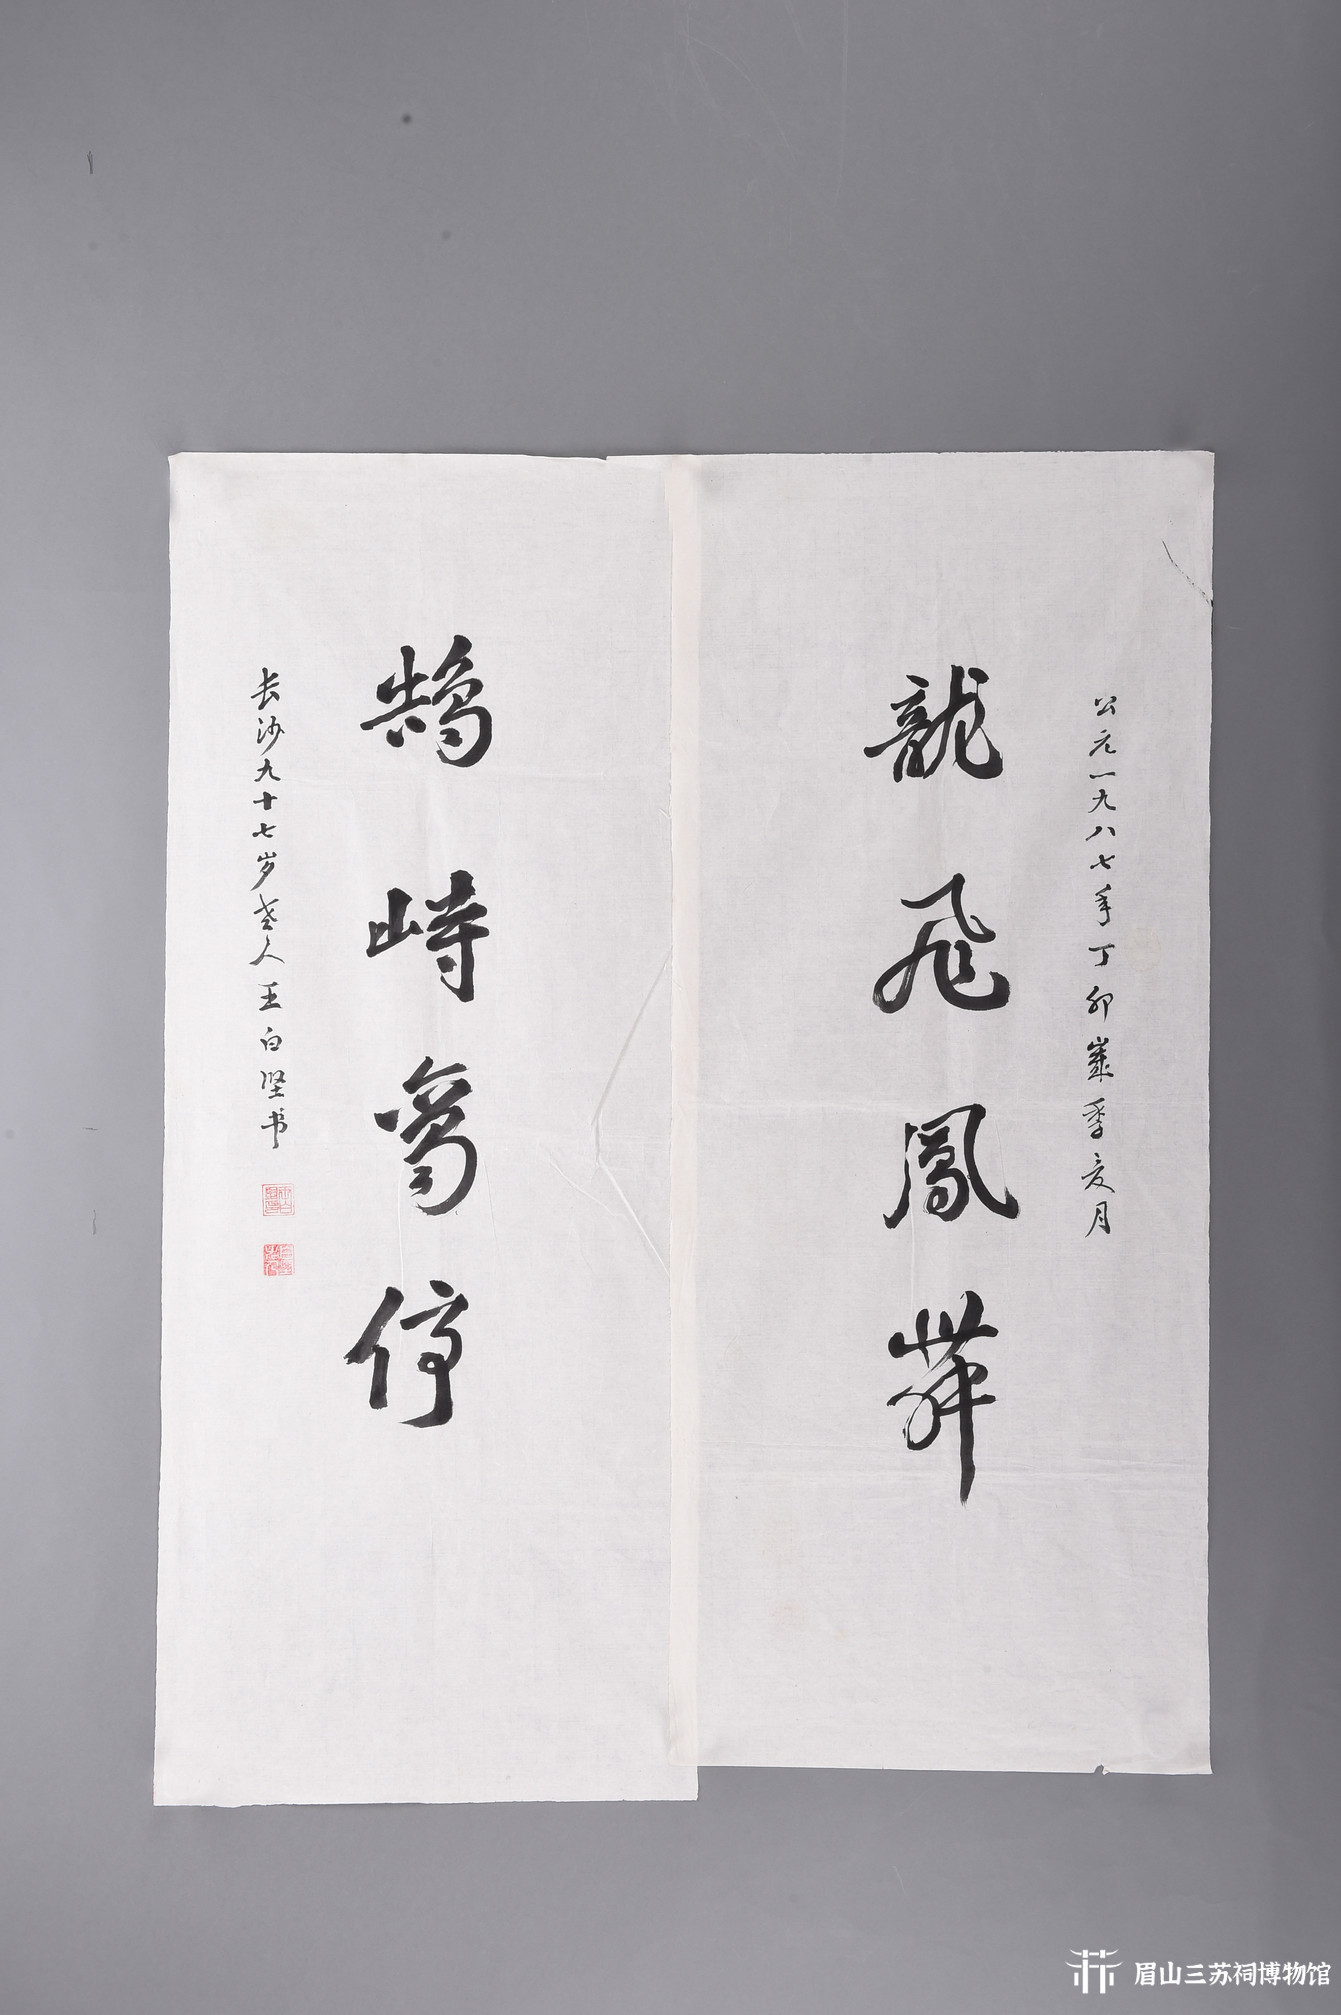 公元一九八七年丁卯歲季夏月
龍飛鳳舞
鵠峙鸾停
长沙九十七岁老人王白坚书
眉山三苏祠博物馆